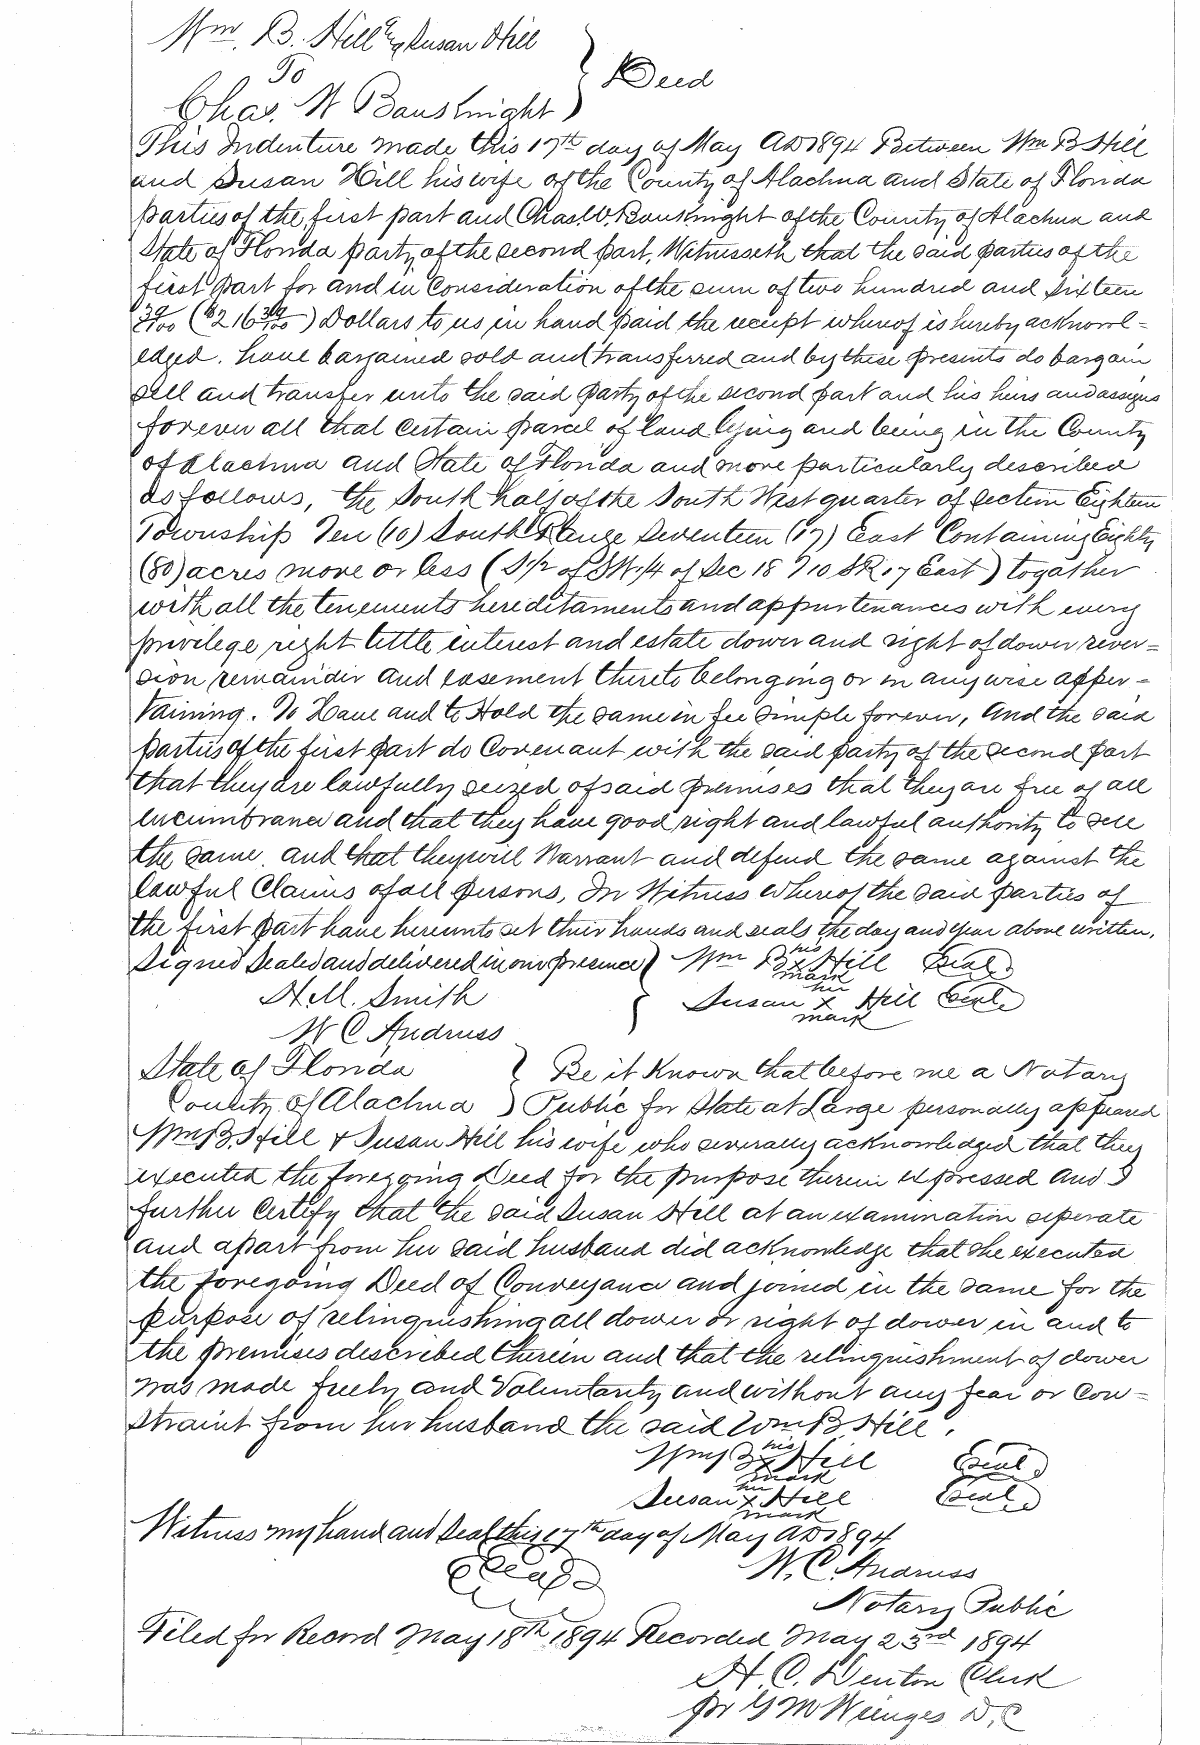 Wm. B. Hill & Susan Hill
To
Deed
Chas. W Bausknight
This Indenture made this 17th day of May AD 1894 Between Wm B Hill
and Susan Hill his wife of the County of Alachua and State of Florida
parties of the first part and Chas. W. Bausknight of the County of Alachua and
State of Florida party of the second part, Witnesseth that the said parties of the
first part for and in Consideration of the sum of two hundred and Sixteen
39/100 ($216 39/100) Dollars to us in hand paid the receipt whereof is hereby acknowl=
edged. have bargained sold and transferred and by these presents do bargain
sell and transfer unto the said party of the second part and his heirs and assigns
forever all that certain parcel of land lying and being in the County
of Alachua and State of Florida and more particularly described
as follows, the South half of the South West quarter of section Eighteen
Township Ten (10) South Range Seventeen (17) East Containing Eighty
(80) acres more or less (S1/2 of SW1/4 of Sec 18 T10 S R17 East) together
with all the tenements hereditaments and appurtenances with every
privilege right tittle interest and estate dower and right of dower rever=
sion remainder and easement thereto belonging or in anywise apper=
taining. To Have and to Hold the same in fee simple forever, And the said
parties of the first part do Covenant with the said party of the second part
that they are lawfully seized of said premises that they are free of all
encumbrance and that they have good right and lawful authority to sell
the same. and that they will Warrant and defend the same against the
lawful Claims of all persons, In Witness Whereof the said parties of
the first part have hereunto set their hands and seals the day and year above written,
Signed Sealed and delivered in our presence Wm B his x mark Hill Seal
H. M. Smith Susan her x mark Hill Seal
W C Andruss
State of Florida Be it Known that before me a Notary
County of Alachua Public for State at Large personally appeared
Wm B. Hill & Susan Hill his wife who severally acknowledged that they
executed the foregoing Deed for the purpose therein expressed and I
further Certify that the said Susan Hill at an examination seperate
and apart from her said husband did acknowledge that she executed
the foregoing Deed of Conveyance and joined in the same for the
purpose of relinquishing all dower or right of dower in and to
the premises described therein and that the relinquishment of dower
was made freely and Voluntarily and without any fear or Con=
straint from her husband the said Wm B. Hill.
Wm B his x mark Hill Seal
Susan her x mark Hill Seal
Witness my hand and Seal this 17th day of May AD 1894
Seal W. C. Andruss
Notary Public
Filed for Record May 18th 1894 Recorded May 23rd 1894
H. C. Denton Clerk
pr G M Wienges D. C